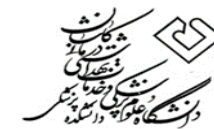 دانشگاه علوم پزشکی
و خدمات
بهداشتی
درمانی
کاشان
دانشکده پزشکی